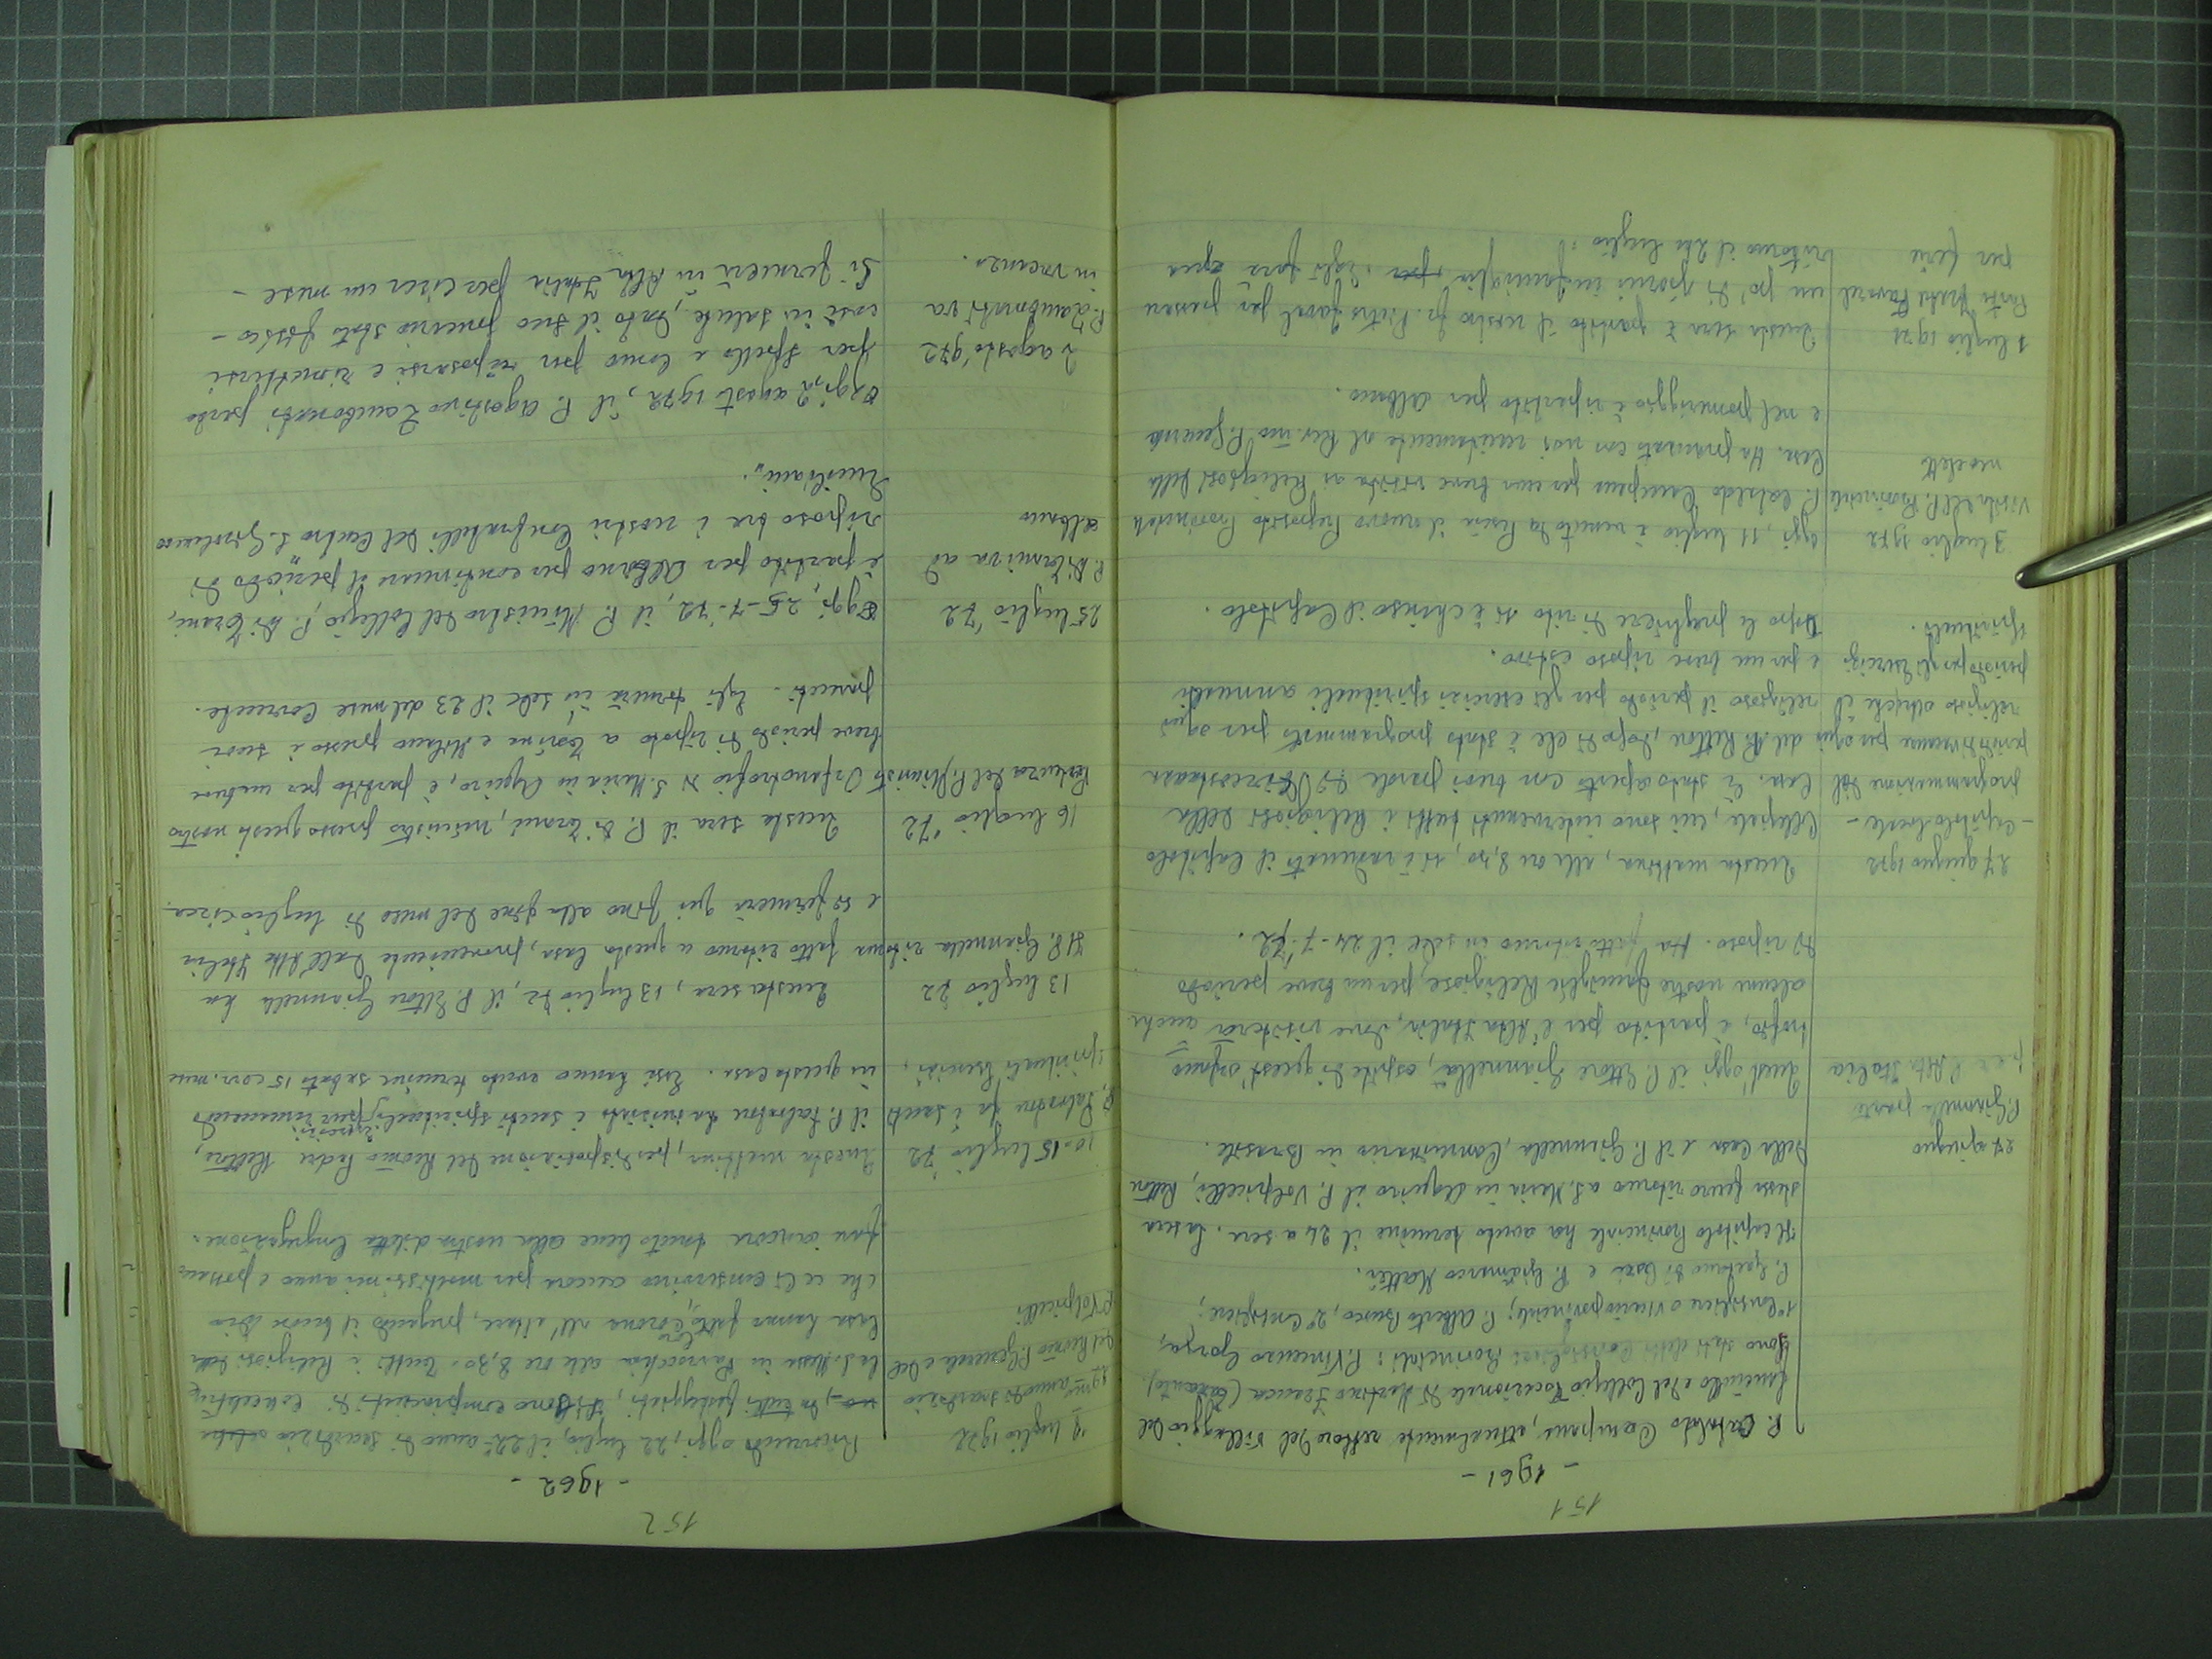 151
- 1961 -
P. Cataldo Campana, attualmente rettore del Villaggio del
Fanciullo e del Collegio Vocazionale di Martina Franca (Taranto).
Sono stati eletti Consiglieri Provinciali: P. Vincenzo Gorga,
1° Consigliere o Vicario provinciale; P. Alberto Busco, 2° Consigliere;
P. Gaetano di Bari e P. Gianmarco Mattei.
Il Capitolo Provinciale ha avuto termine il 24 a sera. La sera
stessa fecero ritorno a S. Maria in Aquiro il P. Volpicelli, Rettore
della Casa e il P. Giannella, Commissario in Brasile.
27 giugno
P. Giannella parte
per l'Alta Italia
Quest'oggi il P. Ettore Giannella, ospite di quest'orfano
trofio, è partito per l'Alta Italia, dove visiterà anche
alcune nostre famiglie Religiose, per un breve periodo
di riposo. Ha fatto ritorno in sede il 24-7-'72.
27 giugno 1972
- Capitolo locale -
programmazione del
periodo vacanze per ogni
religioso oltreché il
periodo per gli esercizi
spirituali.
Questa mattina, alle ore 8,30, si è radunato il Capitolo
Collegiale, cui sono intervenuti tutti i Religiosi della
Casa. È stato aperto con brevi parole di circostanza
del P. Rettore, dopo di che è stato programmato per ogni
religioso il periodo per gli esercizi spirituali annuali
e per un breve riposo estivo.
Dopo le preghiere di rito si è chiuso il Capitolo.
3 luglio 1972
Visita del P. Provinciale
neoeletto
Oggi, 11 luglio è venuto da Pescia il nuovo Preposito Provinciale
P. Cataldo Campana per una breve visita ai Religiosi della
Casa. Ha pranzato con noi unitamente al Rev.mo P. Generale
e nel pomeriggio è ripartito per Albano.
1 luglio 1972
Parte fratel Favarel
per ferie
Questa sera è partito il nostro fr. Pietro Favarel per passare
un po' di giorni in famiglia. Egli farà
ritorno il 24 luglio.
152
- 1962 -
luglio 1972
anno di sacerdozio
del Rev.mo P. Generale e del
P. Volpicelli
Ricorrendo oggi, 22 luglio, il 22° anno di sacerdozio
da tutti festeggiati, si sono compiaciuti di concelebrare
la S. Messa in Parrocchia alle ore 8,30. Tutti i Religiosi della
Casa hanno fatto loro corona all'altare, pregando il buon Dio
che ce li conservino ancora per moltissimi anni e possano
fare ancora tanto bene alla nostra diletta Congregazione.
10-15 luglio 72
P. Salvatore fa i santi
spirituali Esercizi,
Questa mattina, per disposizione del Rev.mo Padre Rettore,
il P. Salvatore ha iniziato i santi spirituali esercizi, pur rimanendo
in questa casa. Essi hanno avuto termine sabato 15 corr. mese
13 luglio 72
Il P. Giannella ritorna
Questa sera, 13 luglio 72, il P. Ettore Giannella ha
fatto ritorno a questa Casa, proveniente dall'Alta Italia
e si fermerà qui fino alla fine del mese di luglio circa.
16 luglio '72
Partenza del P. Ministro
Questa sera il P. Di Tarani, ministro presso questo nostro
Orfanotrofio di S. Maria in Aquiro, è partito per un breve
breve periodo di riposo a Torino e Milano presso i suoi
parenti. Egli tornerà in sede il 23 del mese corrente.
25 luglio '72
P. Di Tarani va ad
Albano
Oggi, 25-7-'72, il P. Ministro del Collegio, P. Di Tarani,
è partito per Albano per continuare il periodo di
riposo tra i nostri Confratelli del Centro S. Girolamo
Emiliani.
2 agosto 972
P. Zambonati va
in vacanza.
Oggi, 2 agosto 1972, il P. Agostino Zambonati parte
per Spello e Como per riposarsi e rimettersi
così in salute, dato il suo precario stato fisico -
Si fermerà in Alta Italia per circa un mese -